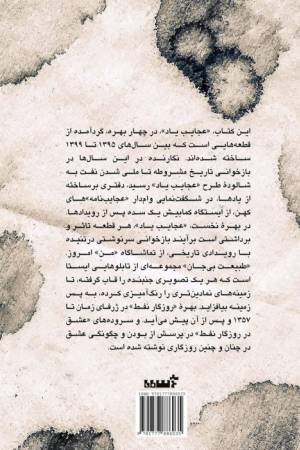 این کتاب، «عجایب یاد»، در چهار بهره، گردآمده از
قطعه‌هایی است که بین سال‌های ۱۳۹۵ تا ۱۳۹۹
ساخته شده‌اند. نگارنده در این سال‌ها در
بازخوانی تاریخ مشروطه تا ملی شدن نفت به
شالوده طرح «عجایب یاد» رسید، دفتری برساخته
از یادها، در شگفت‌نمایی وام‌دار «عجایب‌نامه»های
کهن، از ایستگاه کمابیش یک سده پس از رویدادها.
در بهره نخست، «عجایب یاد»، هر قطعه تاثر و
برداشتی است برآیند بازخوانی سرنوشتی درتنیده
با رویدادی تاریخی، از تماشاگاه «من» امروز.
«طبیعت بی‌جان» مجموعه‌ای از تابلوهایی ایستا
است که هر یک تصویری جنبنده را قاب گرفته، تا
زمینه‌های نمادین‌تری را رنگ‌آمیزی کرده، به پس
زمینه بیافزاید. بهرهٔ «روزگار نفت» در ژرفای زمان تا
۱۳۵۷ و پس از آن پیش می‌آید. و سروده‌های «عشق
در روزگار نفت» در پرسش از بودن و چگونگی عشق
در چنان و چنین روزگاری نوشته شده است.